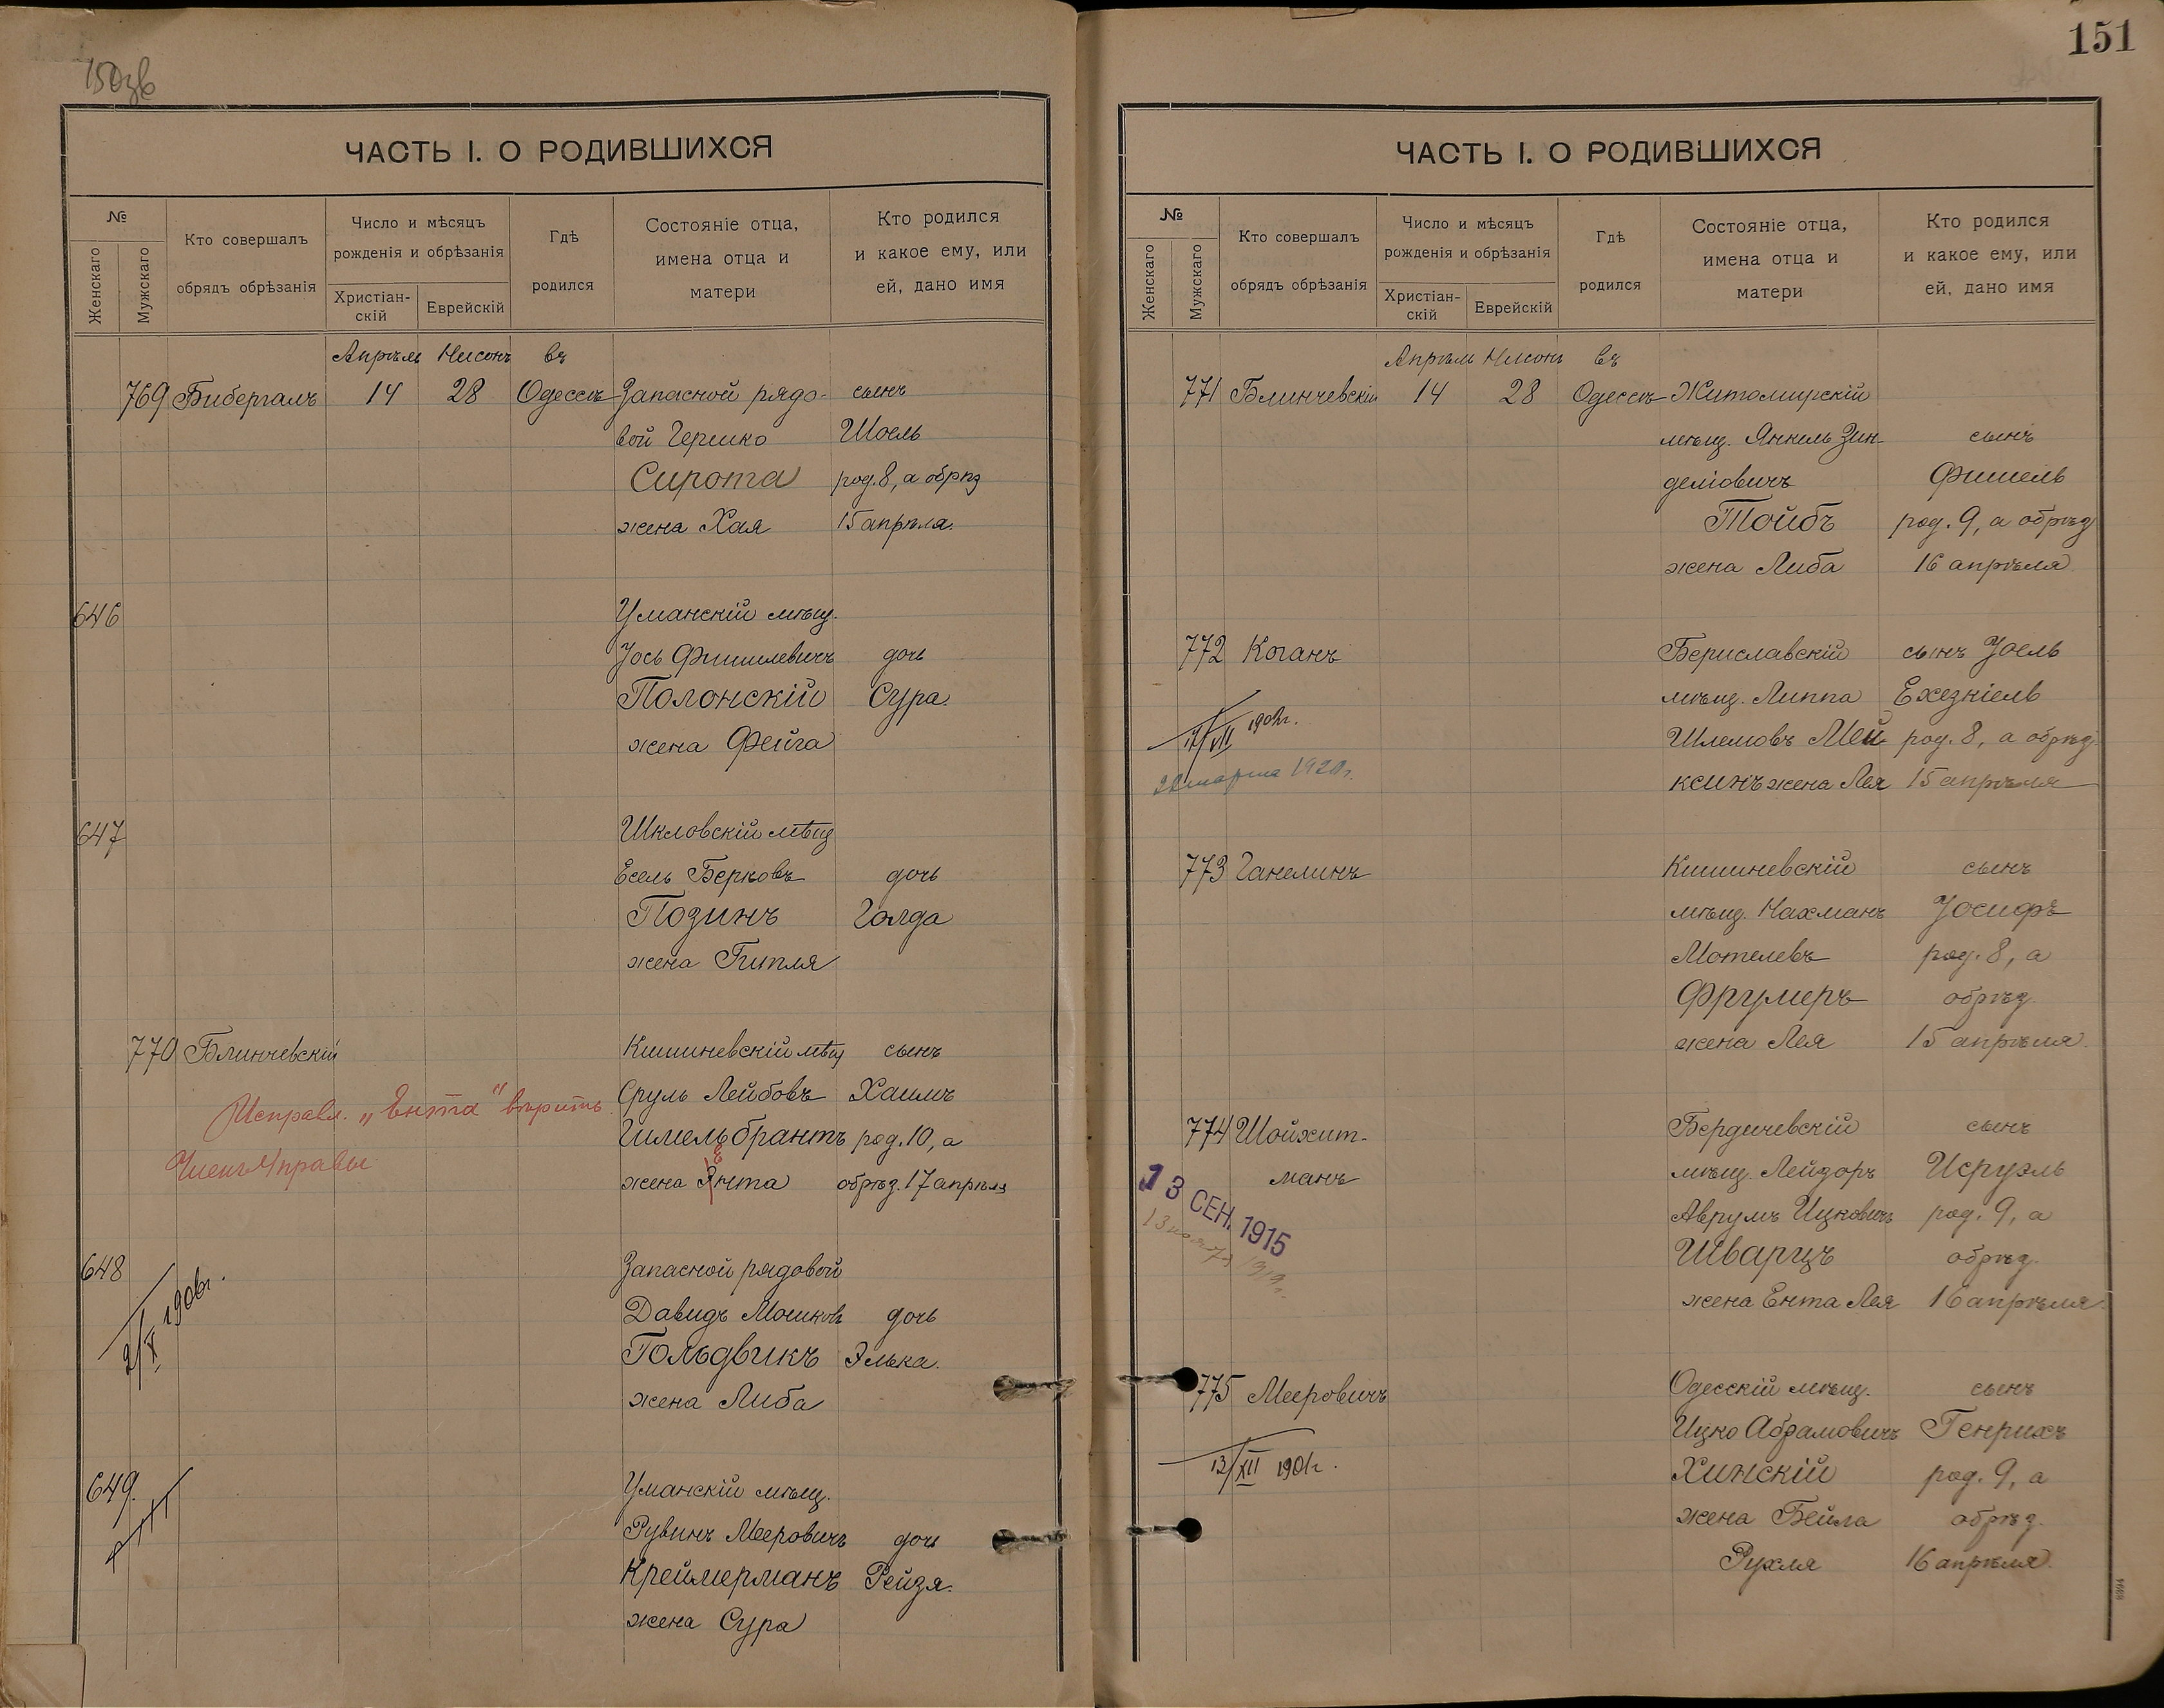 150зв
ЧАСТЬ I. О РОДИВШИХСЯ
№
Женскаго
Мужскаго
Кто совершалъ
обрядъ обрѣзанія
Число и мѣсяцъ
рожденія и обрѣзанія
Христіан-
скій
Еврейскій
Гдѣ
родился
Состояніе отца,
имена отца и
матери
Кто родился
и какое ему, или
ей, дано имя
Апрѣль Нисонъ въ
769 Бибергалъ 14 28 Одессѣ Запасной рядо- сынъ
вой Гершко Шоель
Сирота род. 8, а обрѣз
жена Хая 15 апрѣля.
646 Уманскій мѣщ.
Іось Фишилевичъ дочь
Полонскій Сура.
жена Фейга
647 Шкловскій мѣщ
Есель Берковъ дочь
Позинъ Голда
жена Гитля
770 Блинчевскій Кишиневскій мѣщ сынъ
Сруль Лейбовъ Хаимъ
Исправл. „Ента" вѣрить
Гимельбрантъ род. 10, а
Членъ Управы
жена Янта обрѣз. 17 апрѣля
Е
648 Запасной рядовой
2/X 1906г.
Давидъ Мошковъ дочь
Гольдвикъ Элька.
жена Либа
649. Уманскій мѣщ.
Рувинъ Мееровичъ дочь
Креймерманъ Рейзя.
жена Сура
151
ЧАСТЬ I. О РОДИВШИХСЯ
№
Женскаго
Мужскаго
Кто совершалъ
обрядъ обрѣзанія
Число и мѣсяцъ
рожденія и обрѣзанія
Христіан-
скій
Еврейскій
Гдѣ
родился
Состояніе отца,
имена отца и
матери
Кто родился
и какое ему, или
ей, дано имя
Апрѣль Нисонъ въ
771 Блинчевскій 14 28 Одессѣ Житомирскій
мѣщ. Янкель Зин- сынъ
деліовичъ Фишель
Тойбъ род. 9, а обрѣз
жена Либа 16 апрѣля
772 Коганъ Бериславскій сынъ Іоель
мѣщ. Липпа Ехезкіель
Шлемовъ Мей- род. 8, а обрѣз.
ксинъ жена Лея 15 апрѣля
марта 1920г.
773 Ганелинъ Кишиневскій сынъ
мѣщ. Нахманъ Іосифъ
Мотелевъ род. 8, а
Фрумеръ обрѣз.
жена Лея 15 апрѣля.
774 Шойхит- Бердичевскій сынъ
манъ мѣщ. Лейзоръ Исруэль
13 СЕН. 1915
Аврумъ Ицковичъ род. 9, а
Шварцъ обрѣз.
жена Ента Лея 16 апрѣля.
775 Мееровичъ Одесскій мѣщ. сынъ
Ицко Абрамовичъ Генрихъ
13/XII 1901г. Хинскій род. 9, а
жена Бейла обрѣз.
Рухля 16 апрѣля.